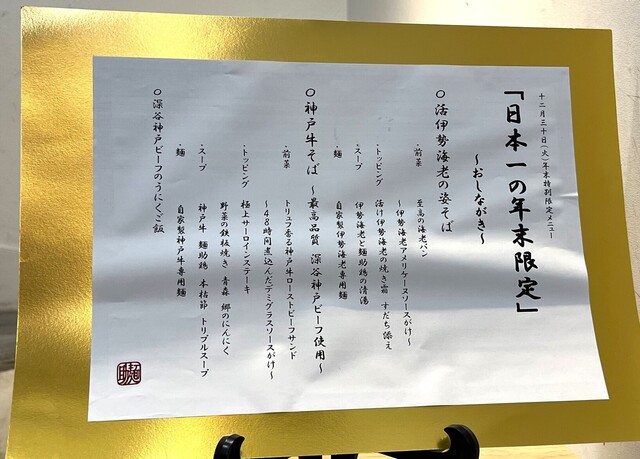 十二月三十日(火)年末特別限定メニュー
「日本一の年末限定」
～おしながき～
○活伊勢海老の姿そば
・前菜 至高の海老パン
～伊勢海老アメリケーヌソースがけ～
・トッピング 活け伊勢海老の焼き霜 すだち添え
・スープ 伊勢海老と麺助鶏の清湯
・麺 自家製伊勢海老専用麺
○神戸牛そば ～最高品質 深谷神戸ビーフ使用～
・前菜 トリュフ香る神戸牛ローストビーフサンド
～48時間煮込んだデミグラスソースがけ～
・トッピング 極上サーロインステーキ
野菜の鉄板焼き 青森 郷のにんにく
・スープ 神戸牛 麺助鶏 本枯節 トリプルスープ
・麺 自家製神戸牛専用麺
○深谷神戸ビーフのうにくご飯